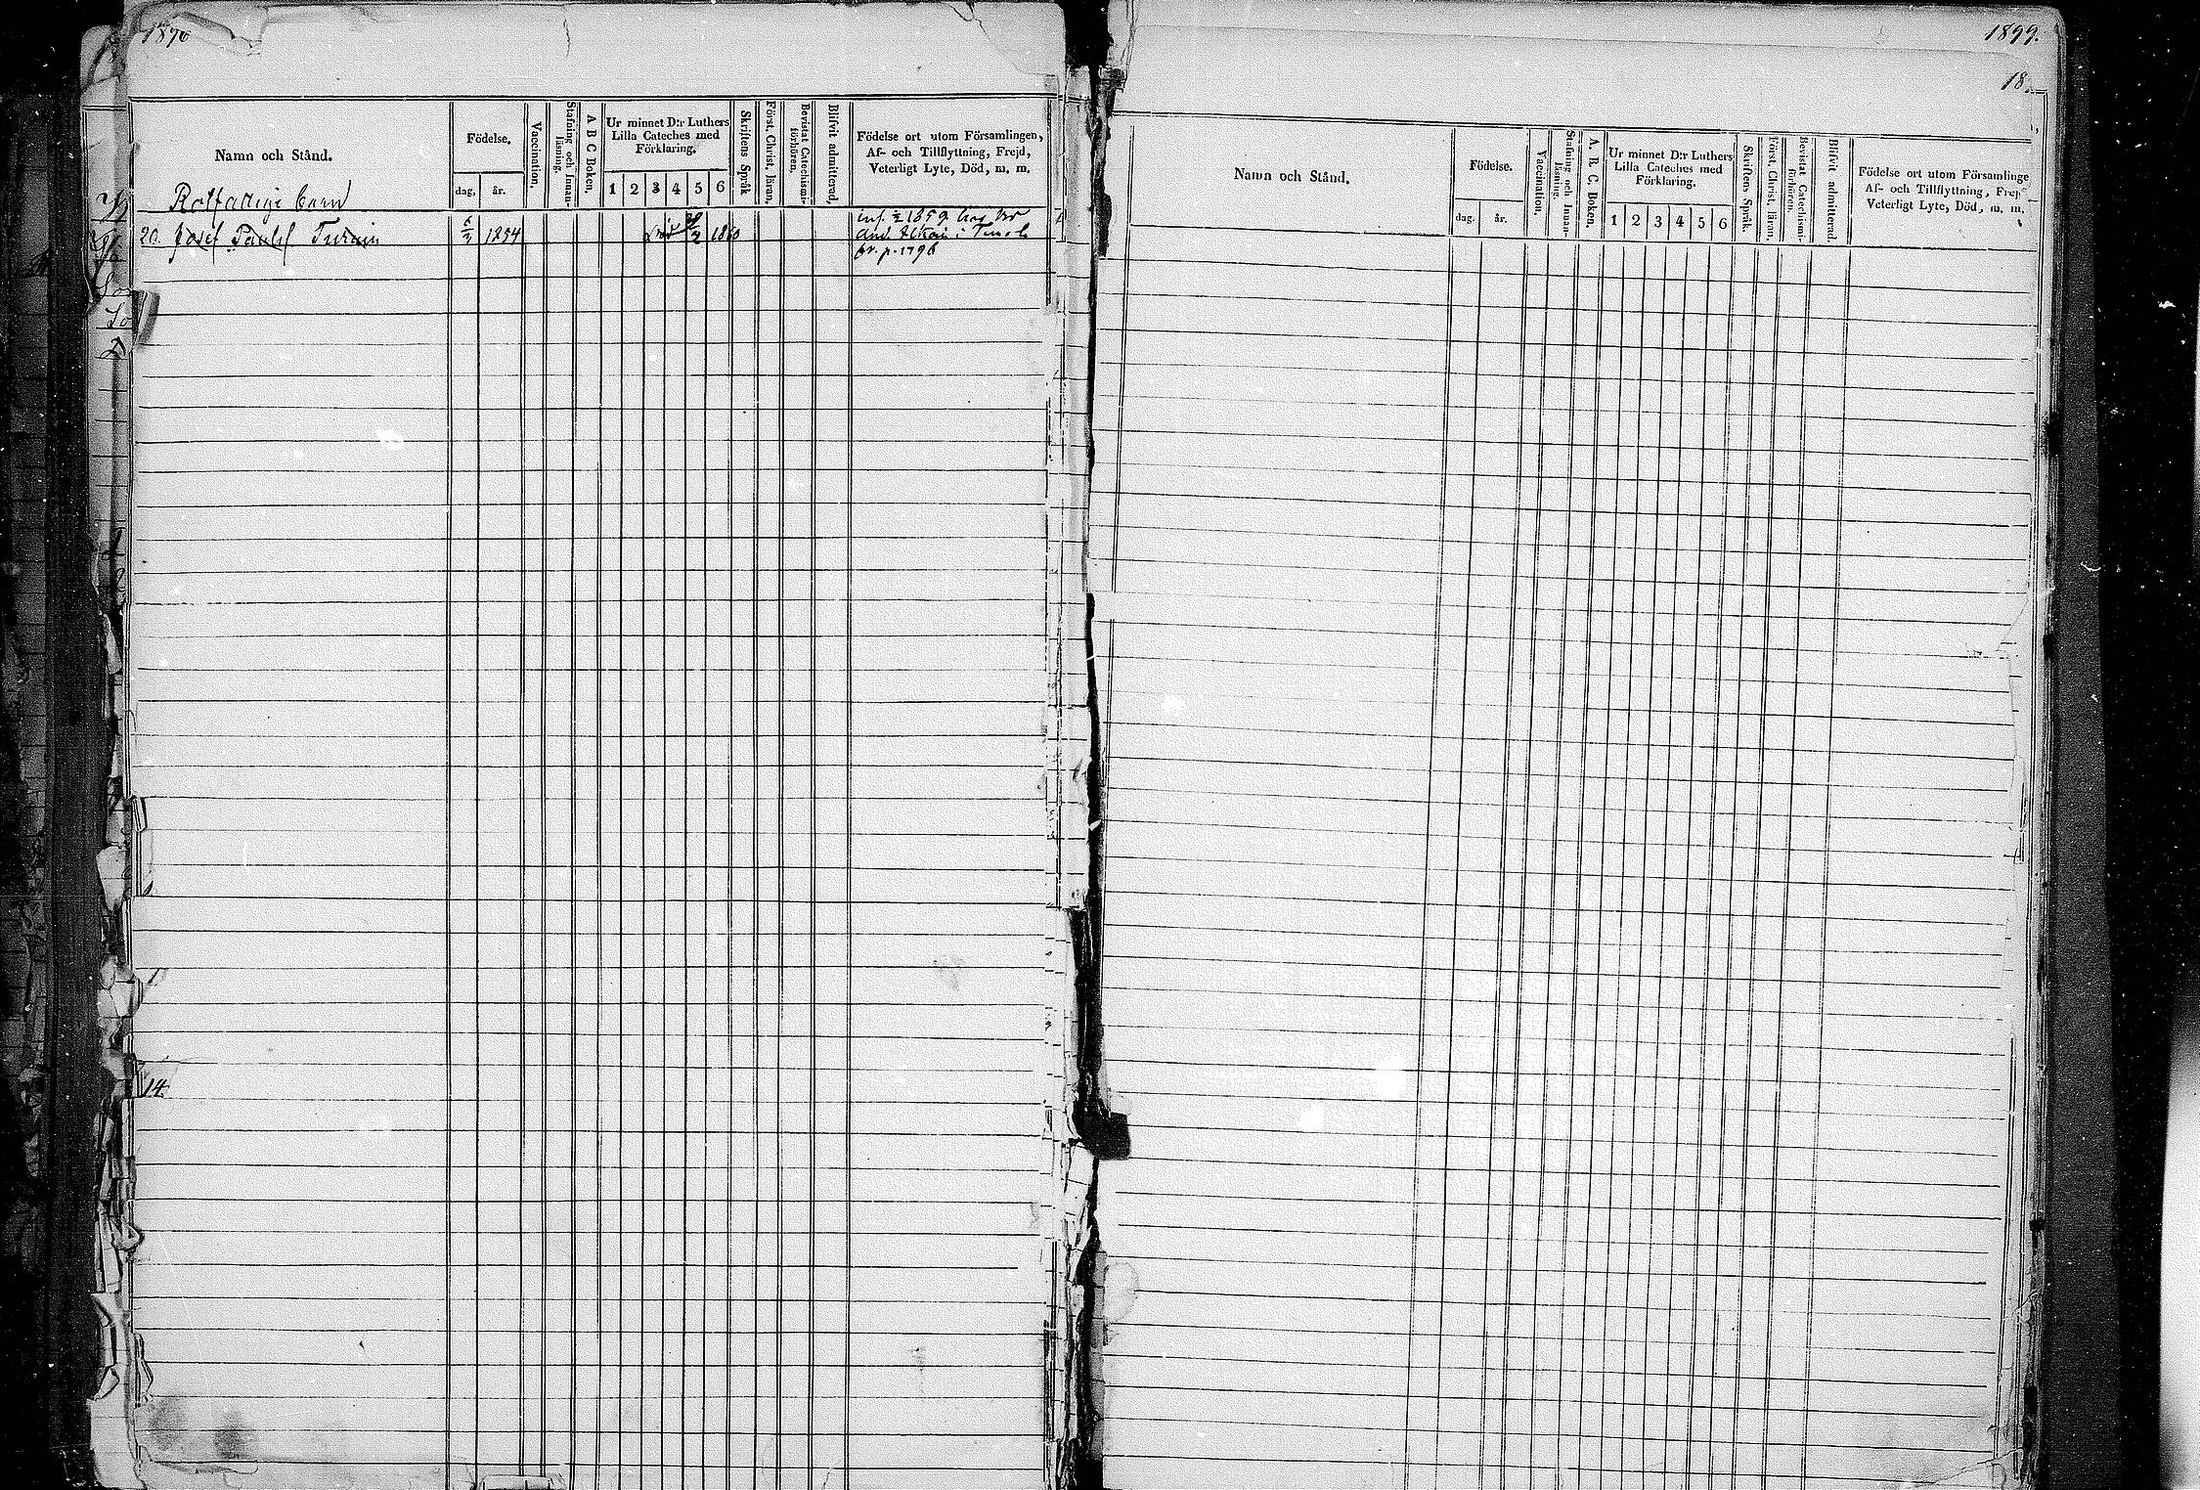 1899.
18
Namn och Stånd.
Födelse.
dag,
år.
Vaccination.
Stafning och Innan-
läsning.
A B C Boken.
Ur minnet D:r Luthers
Lilla Cateches med
Förklaring.
1 2 3 4 5 6
Skriftens Språk
Först. Christ. läran.
Bevistat Catechismi-
förhören.
Blifvit admitterad.
Födelse ort utom Församlingen,
Af- och Tillflyttning, Frejd,
Veterligt Lyte, Död, m. m.
20. Josef Turuin 1854 1860
1859
fr. p. 1796
14.
Namn och Stånd.
Födelse.
dag.
år.
Vaccination.
Stafning och Innan-
läsning.
A. B. C. Boken.
Ur minnet D:r Luthers
Lilla Cateches med
Förklaring.
1 2 3 4 5 6
Skriftens Språk.
Först. Christ. läran.
Bevistat Catechismi-
förhören.
Blifvit admitterad.
Födelse ort utom Församlinge
Af- och Tillflyttning, Frej
Veterligt Lyte, Död, m. m.